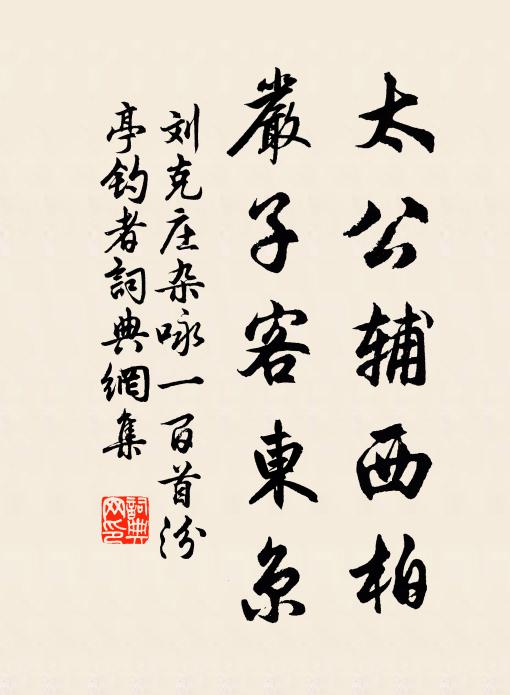 太公辅西柏
嚴子客東京
刘克庄杂咏一百首汾
亭钓者詞典網集
詞典网印